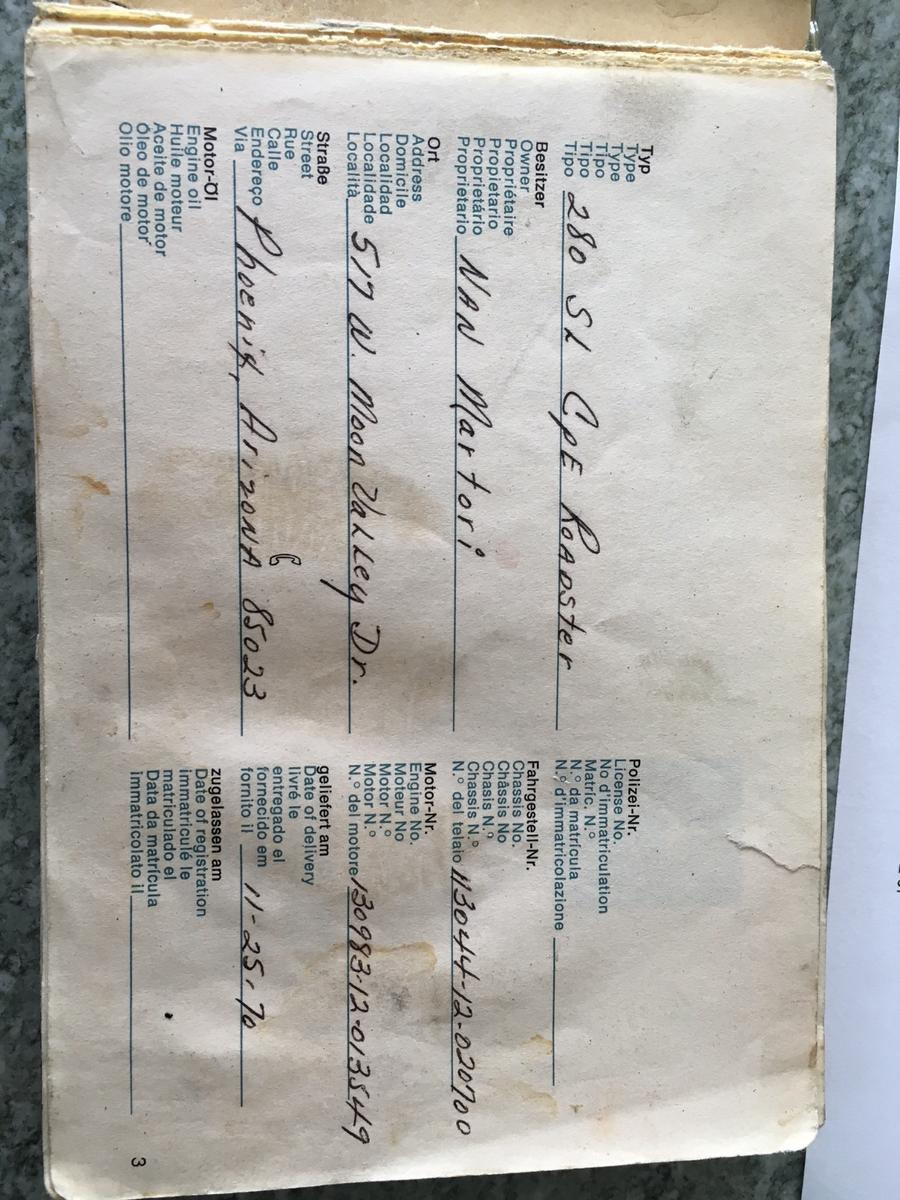 Typ
Type
Type
Tipo
Tipo
Tipo 280 SL CpE ROADster
Besitzer
Owner
Propriétaire
Propietario
Proprietário
Proprietario NAN Martori
Ort
Address
Domicile
Localidad
Localidade
Località 517 W. Moon VaLLey Dr.
Straße
Street
Rue
Calle
Endereço
Via Phoenix, ArizoNA 85023
Motor-Öl
Engine oil
Huile moteur
Aceite de motor
Óleo de motor
Olio motore
Polizei-Nr.
License No.
No d'immatriculation
Matric. N.º
N.º da matrícula
N.º d'immatricolazione
Fahrgestell-Nr.
Chassis No.
Châssis No
Chasis N.º
Chassis N.º
N.º del telaio 113044-12-020700
Motor-Nr.
Engine No.
Moteur No
Motor N.º
Motor N.º
N.º del motore 130983-12-013549
geliefert am
Date of delivery
livré le
entregado el
fornecido em
fornito il 11-25-70
zugelassen am
Date of registration
immatriculé le
matriculado el
Data da matrícula
immatricolato il
3